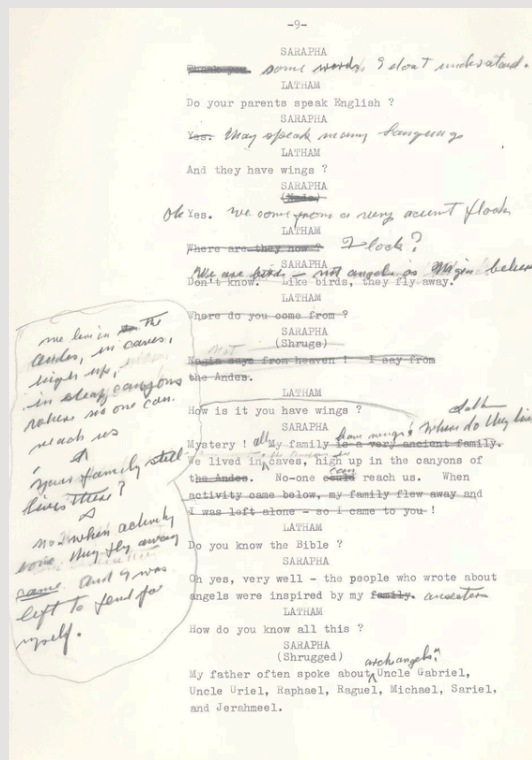 -9-
SARAPHA
some words I don't understand.
LATHAM
Do your parents speak English ?
SARAPHA
Yes. They speak many languages
LATHAM
And they have wings ?
SARAPHA
(Nods)
Oh Yes. We come from a very ancient flock
LATHAM
Where are they now ? Flock?
SARAPHA
We are birds - not angels as
Don't know. Like birds, they fly away.
LATHAM
Where do you come from ?
SARAPHA
(Shrugs)
says from heaven ! I say from
the Andes.
LATHAM
How is it you have wings ?
SARAPHA
have wings! Where do they live
Mystery ! all My family is a very ancient family.
We lived in caves, high up in the canyons of
the Andes. No-one could can reach us. When
activity came below, my family flew away and
I was left alone - so i came to you !
LATHAM
Do you know the Bible ?
SARAPHA
Oh yes, very well - the people who wrote about
angels were inspired by my family. ancestors
LATHAM
How do you know all this ?
SARAPHA
(Shrugged)
archangels:
My father often spoke about Uncle Gabriel,
Uncle Uriel, Raphael, Raguel, Michael, Sariel,
and Jerahmeel.
We live in the
Andes, in caves,
high up,
in steep canyons
where no one can
reach us
L
your family still
lives there?
S
No - when activity
came they fly away
came and I was
left to fend for
myself.